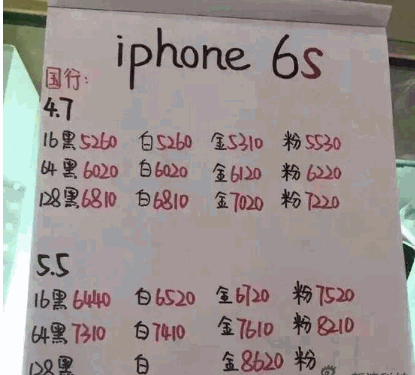 iphone 6s
国行:
4.7
16黑5260 白5260 金5310 粉5530
64黑6020 白6020 金6120 粉6220
128黑6810 白6810 金7020 粉7220
5.5
16黑6440 白6520 金6720 粉7520
64黑7310 白7410 金7610 粉8210
128黑 白 金8620 粉